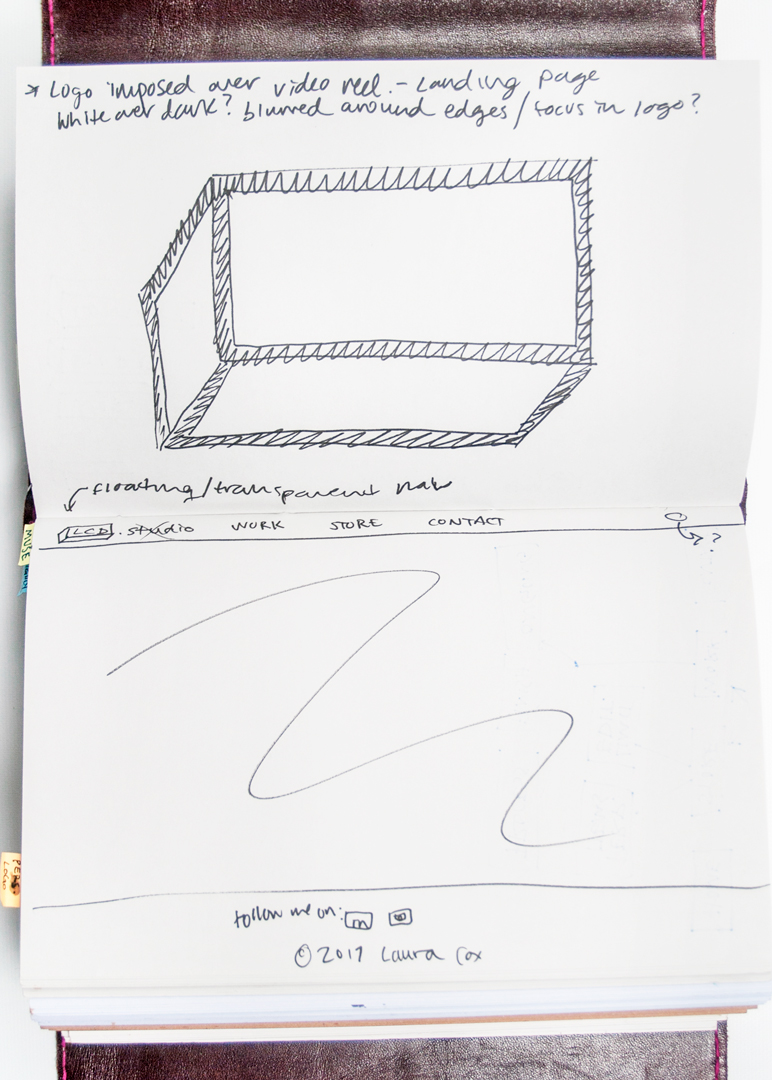 * Logo imposed over video reel. - Landing page
White over dark? blurred around edges / focus in logo?
floating/transparent nav
LCD .studio WORK STORE CONTACT
?
MUSE
PERS.
LOGO
follow me on: in
© 2017 Laura Cox